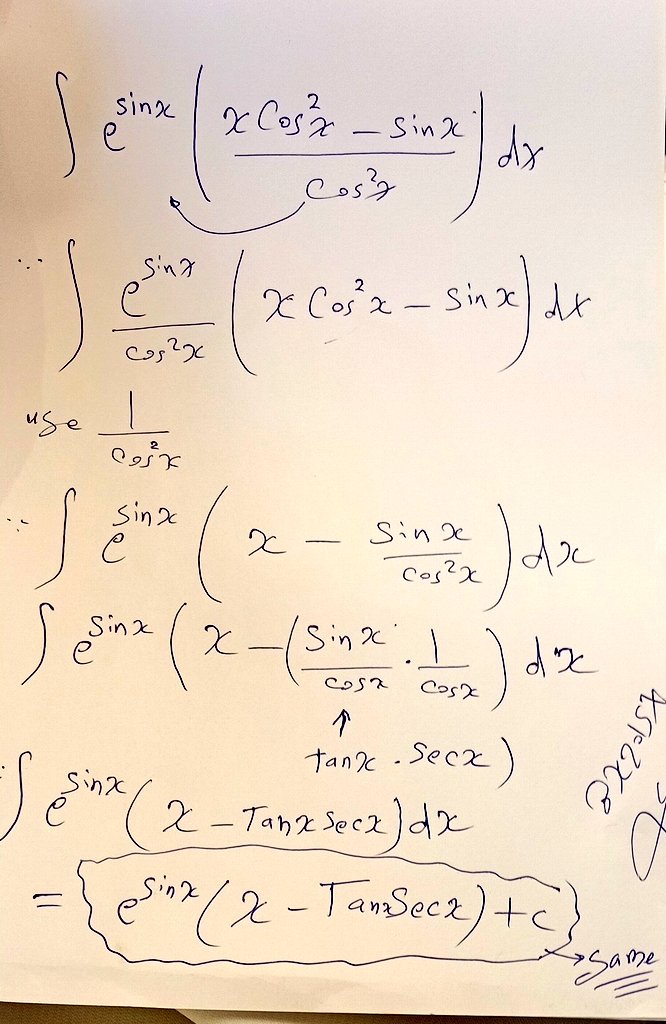 ∫ e^sinx ( (x Cos²x − Sinx) / Cos²x ) dx
∵ ∫ e^Sinx / cos²x ( x Cos²x − Sinx ) dx
use 1 / Cos²x
∵ ∫ e^Sinx ( x − Sinx / Cos²x ) dx
∫ e^Sinx ( x − ( Sinx / cosx · 1 / Cosx ) dx
↑
tanx . Secx )
∫ e^Sinx ( x − Tanx Secx ) dx
= e^Sinx ( x − TanxSecx ) + c
→ Same